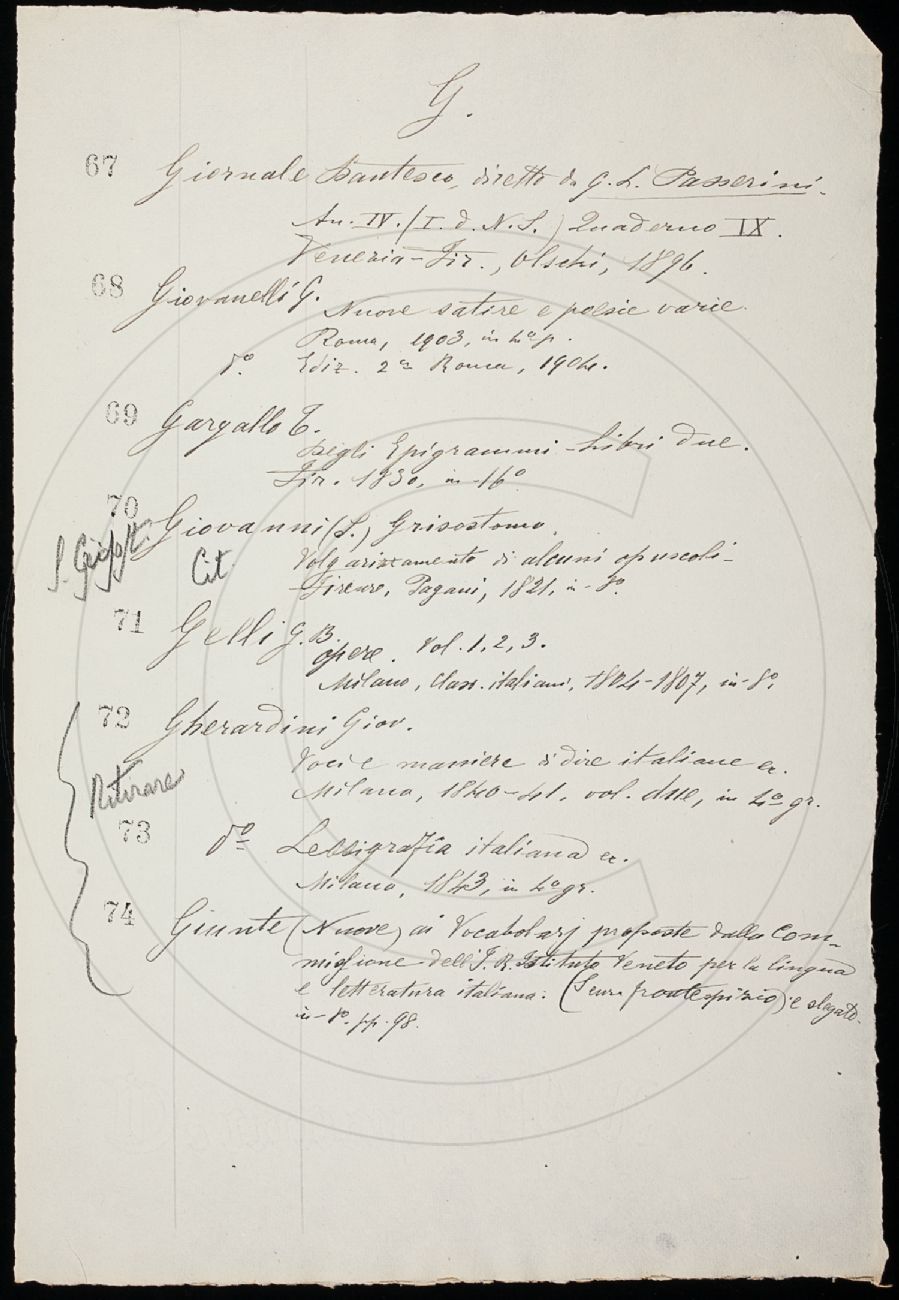 G.
67 Giornale Dantesco, diretto da G. L. Passerini.
An. IV. (I. d. N. S.) Quaderno IX.
Venezia-Fir., Olschi, 1896.
68 Giovanelli G.
Nuove satire e poesie varie.
Roma, 1903, in 4º p.
dº. Ediz. 2ª Roma, 1904.
69 Gargallo T.
Degli Epigrammi - Libri due.
Fir. 1830, in-16º
70 Giovanni (S.) Grisostomo.
Cit. Volgarizzamento di alcuni opuscoli-
Firenze, Pagani, 1821, in-8º.
71 Gelli G. B.
opere. Vol. 1, 2, 3.
Milano, Class. italiani, 1804-1807, in-8º.
72 Gherardini Giov.
Voci e maniere di dire italiane ec.
Ritirare
Milano, 1840-41. vol. due, in 4º gr.
73 dº Lessigrafia italiana ec.
Milano, 1843, in 4º gr.
74 Giunte (Nuove) ai Vocabolarj proposte dalla Com-
missione dell'I. R. Istituto Veneto per la lingua
e letteratura italiana. (Senza frontespizio) e slegato.
in-8º. pp. 98.